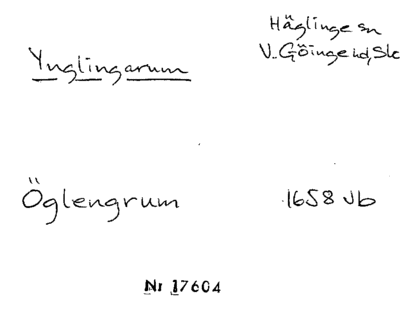 Häglinge sn
Ynglingarum
V. Göinge hd, Sk
Öglengrum
1658 Jb
Nr 17604